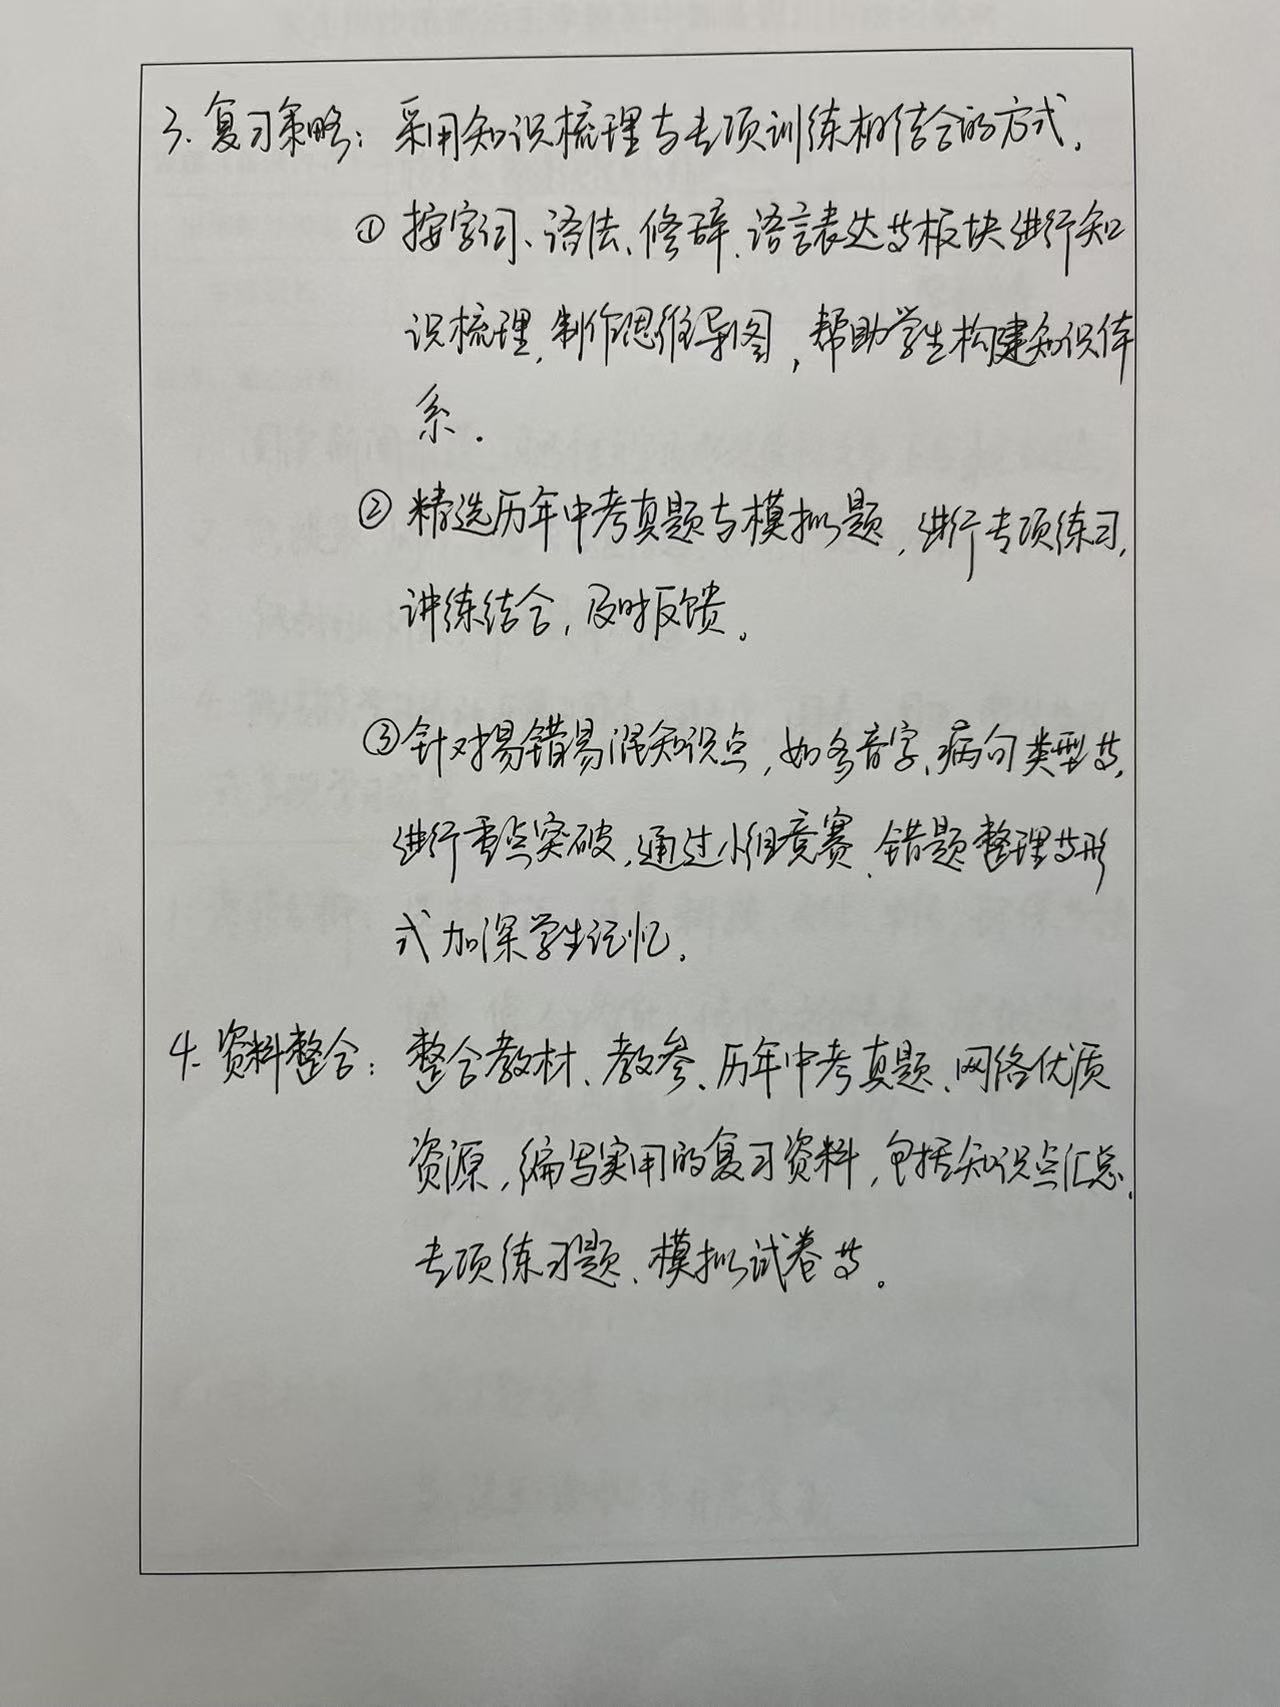 3. 复习策略：采用知识梳理与专项训练相结合的方式.
① 按字词、语法、修辞、语言表达等板块进行知
识梳理,制作思维导图，帮助学生构建知识体
系.
② 精选历年中考真题与模拟题，进行专项练习,
讲练结合，及时反馈。
③ 针对易错易混知识点，如多音字、病句类型等,
进行重点突破，通过小组竞赛、错题整理等形
式加深学生记忆.
4. 资料整合：整合教材、教参、历年中考真题、网络优质
资源，编写实用的复习资料，包括知识点汇总、
专项练习题、模拟试卷等。